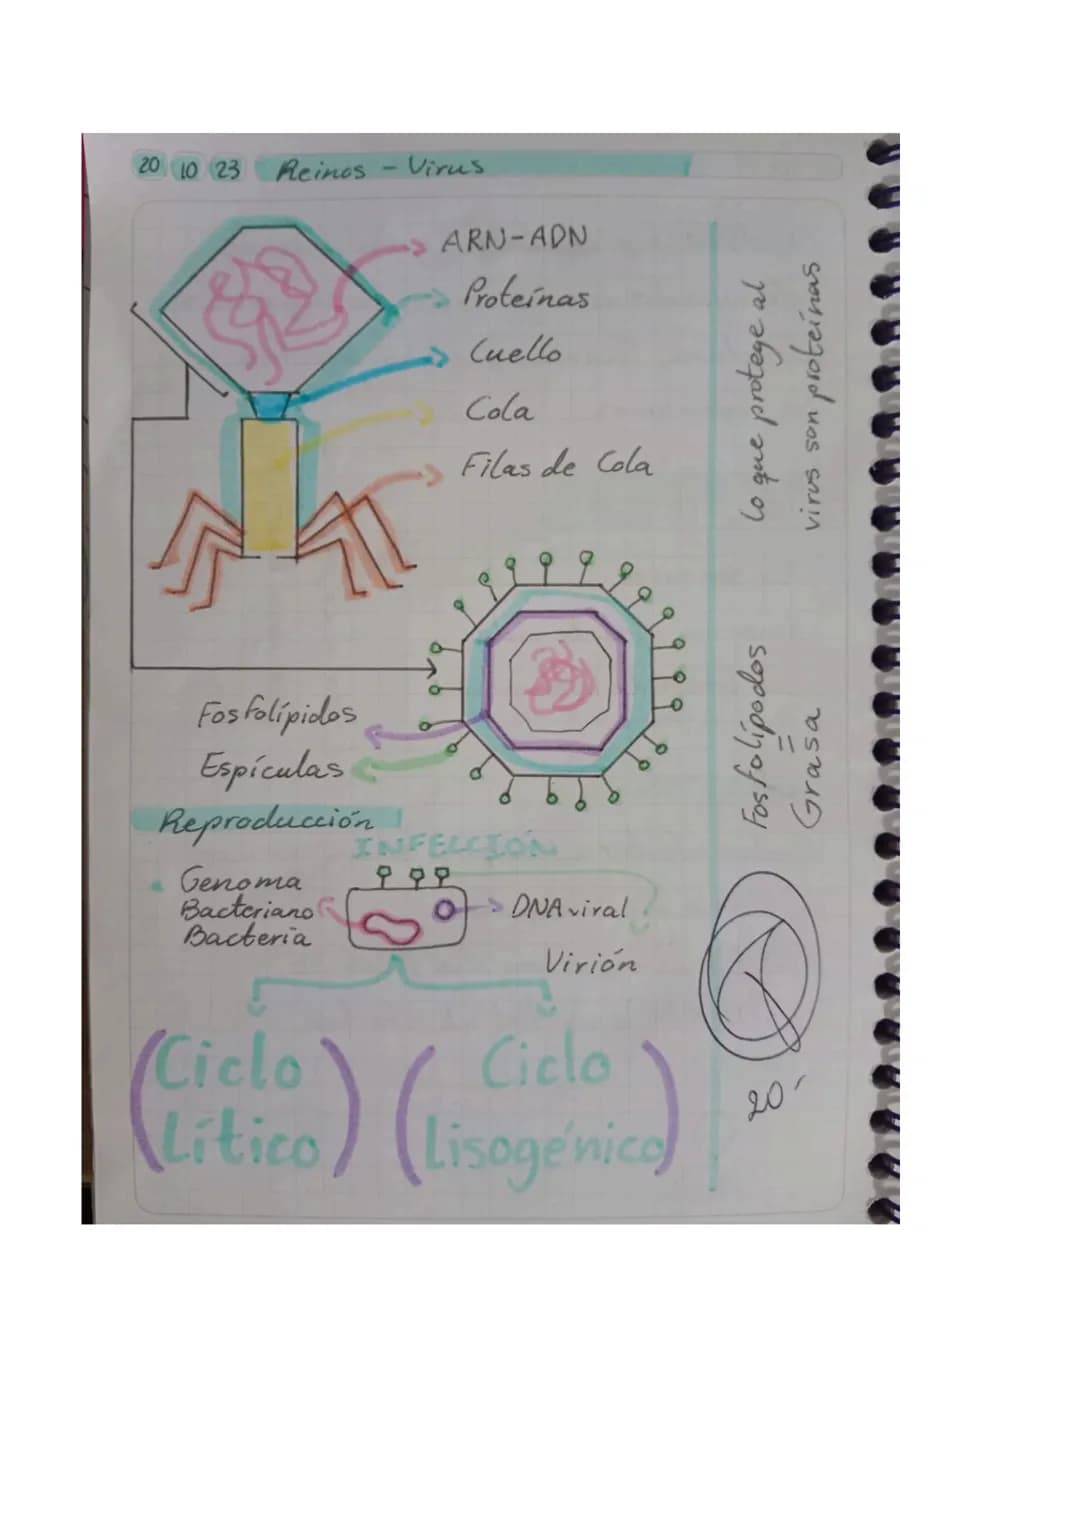 20 10 23 Reinos - Virus
ARN-ADN
Proteínas
Cuello
Cola
Filas de Cola
Fosfolípidos
Espículas
Reproducción
INFECCIÓN
Genoma
Bacteriano
Bacteria
DNA viral
Virión
(Ciclo
Lítico)
(Ciclo
Lisogénico)
Lo que protege al
virus son proteínas
Fosfolípodos
=
Grasa
20